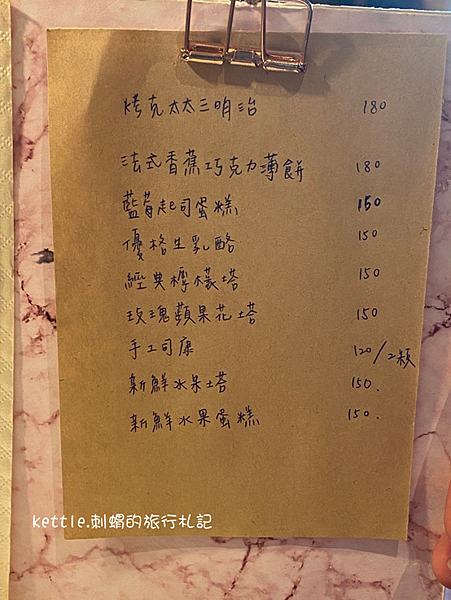 烤克太太三明治 180
法式香蕉巧克力薄餅 180
藍莓起司蛋糕 150
優格生乳酪 150
經典檸檬塔 150
玫瑰蘋果花塔 150
手工司康 120/2顆
新鮮水果塔 150.
新鮮水果蛋糕 150.
kettle.刺蝟的旅行札記